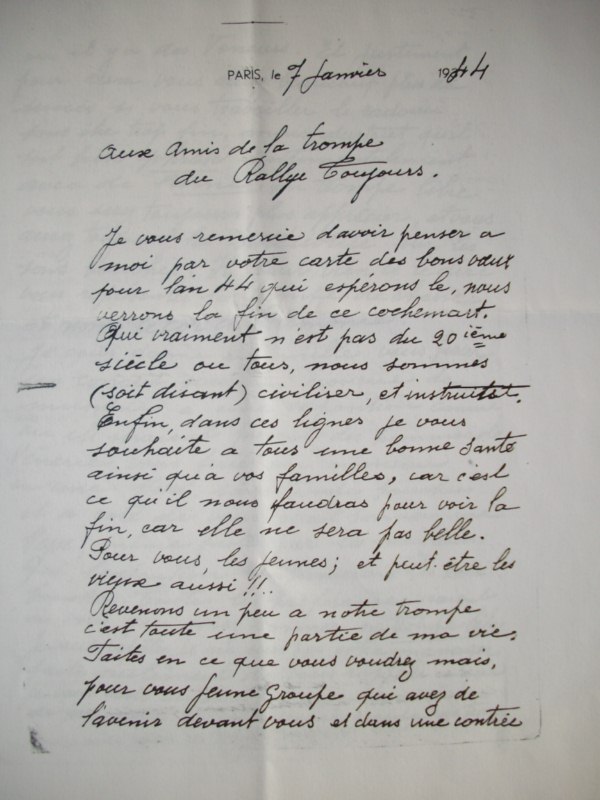 PARIS, le 7 Janvier 1944
aux Amis de la trompe
du Rallye Toujours.
Je vous remercie d'avoir penser a
moi par votre carte des bons vœux
pour l'an 44 qui espérons le, nous
verrons la fin de ce cochemart.
Qui vraiment n'est pas du 20 ième
siècle ou tous, nous sommes
(soit disant) civiliser, et instruit.
Enfin, dans ces lignes je vous
souhaite a tous une bonne santé
ainsi qu'à vos familles, car c'est
ce qu'il nous faudras pour voir la
fin, car elle ne sera pas belle.
Pour vous, les jeunes; et peut-être les
vieux aussi !!!.
Revenons un peu a notre trompe
c'est toute une partie de ma vie.
Faites en ce que vous voudrez mais,
pour vous Jeune Groupe qui avez de
l'avenir devant vous et dans une contrée